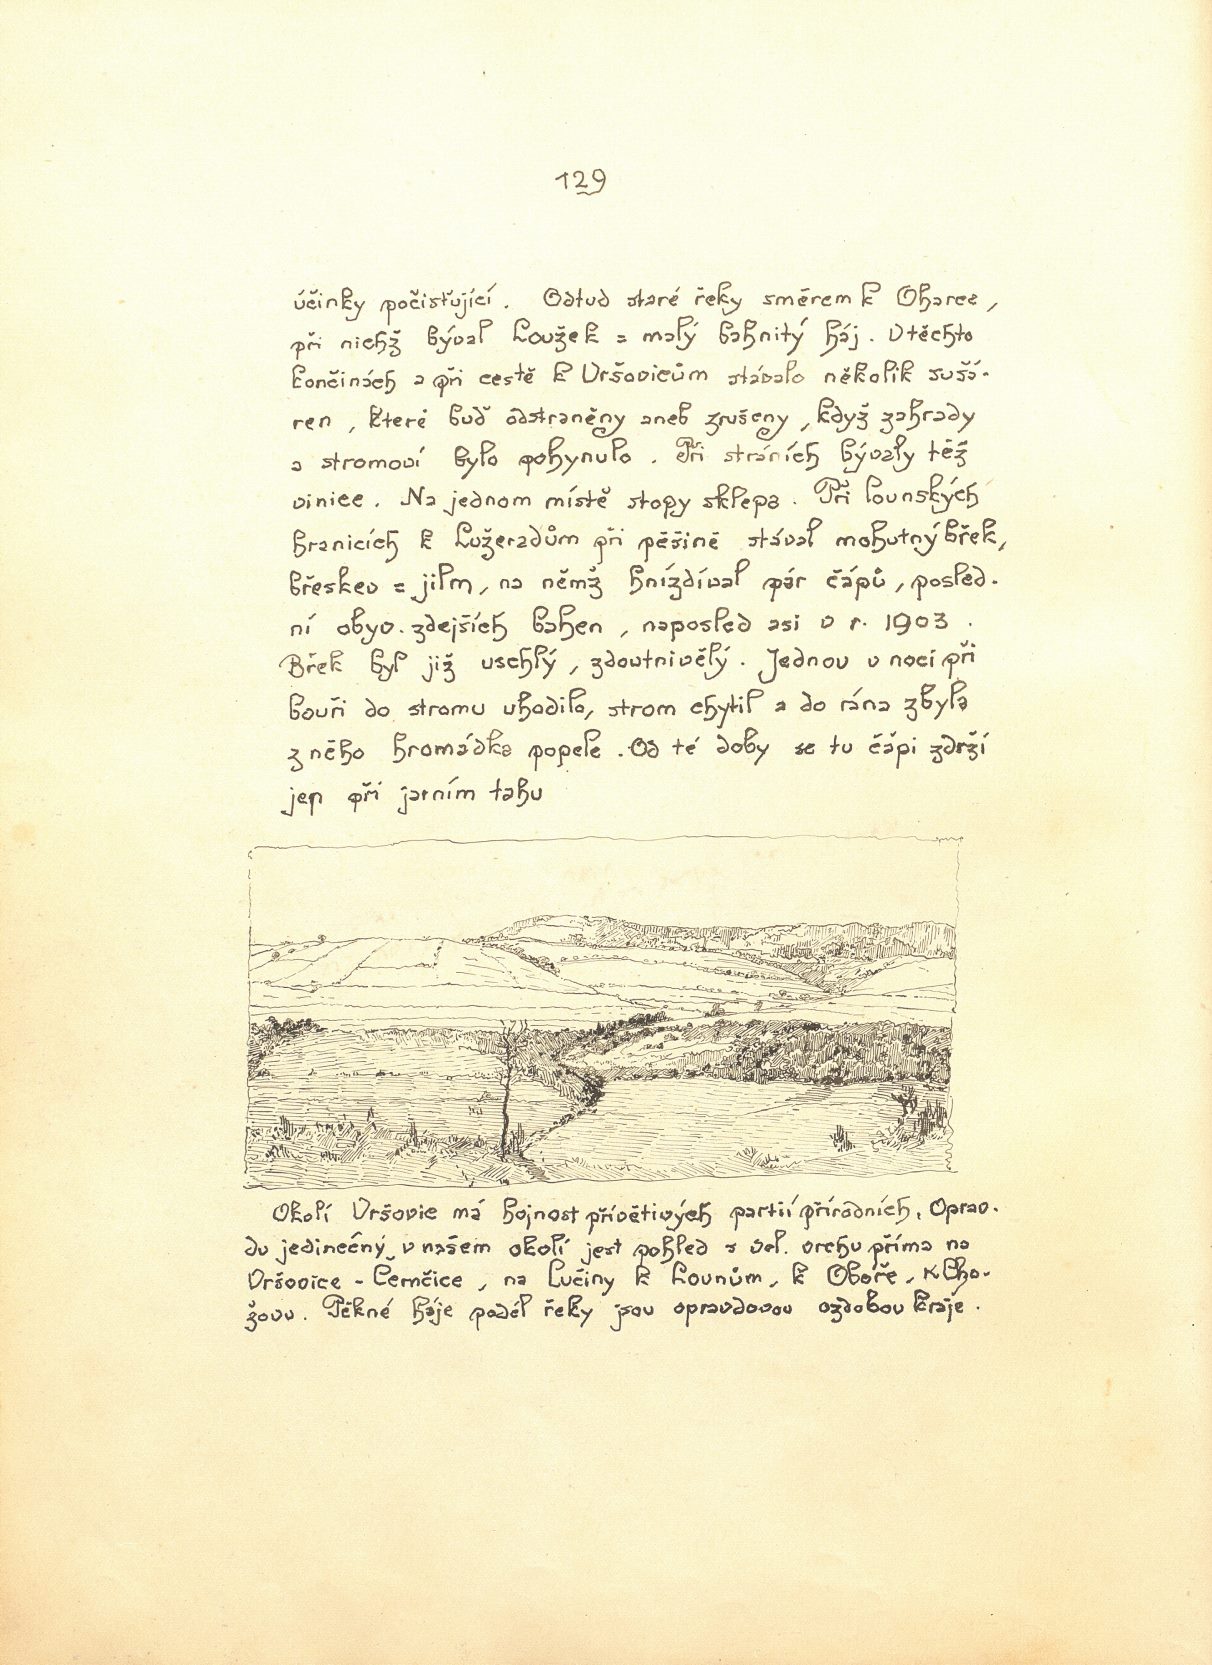 129
účinky počisťující. Odtud staré řeky směrem k Oharce,
při nichž býval Loužek = malý bahnitý háj. V těchto
končinách a při cestě k Vršovicům stávalo několik sušá-
ren, které buď odstraněny aneb zrušeny, když zahrady
a stromoví bylo pohynulo. Při stráních bývaly též
vinice. Na jednom místě stopy sklepa. Při lounských
hranicích k Lužeradům při pěšině stával mohutný břek,
břeskev = jilm, na němž hnízdíval pár čápů, posled-
ní obyv. zdejších bahen, naposled asi v r. 1903.
Břek byl již uschlý, zdoutnivělý. Jednou v noci při
bouři do stromu uhodilo, strom chytil a do rána zbyla
z něho hromádka popele. Od té doby se tu čápi zdrží
jen při jarním tahu
Okolí Vršovic má hojnost přívětivých partií přírodních. Oprav-
du jedinečný v našem okolí jest pohled s vel. vrchu přímo na
Vršovice - Černčice, na Lučiny k Lounům, k Oboře, k Cho-
žovu. Pěkné háje podél řeky jsou opravdovou ozdobou kraje.